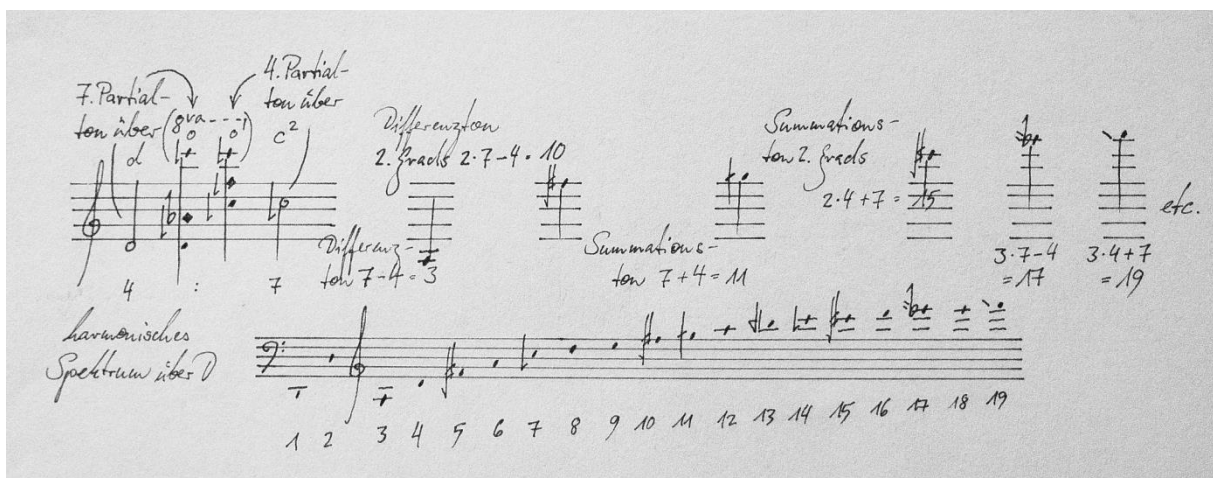 7. Partial-
ton über
(8va----)
d
4. Partial-
ton über
c²
4 : 7
Differenz-
ton 7-4=3
Differenzton
2. Grads 2·7-4=10
Summations-
ton 7+4=11
Summations-
ton 2. Grads
2·4+7=15
3·7-4
=17
3·4+7
=19
etc.
harmonisches
Spektrum über D
1 2 3 4 5 6 7 8 9 10 11 12 13 14 15 16 17 18 19